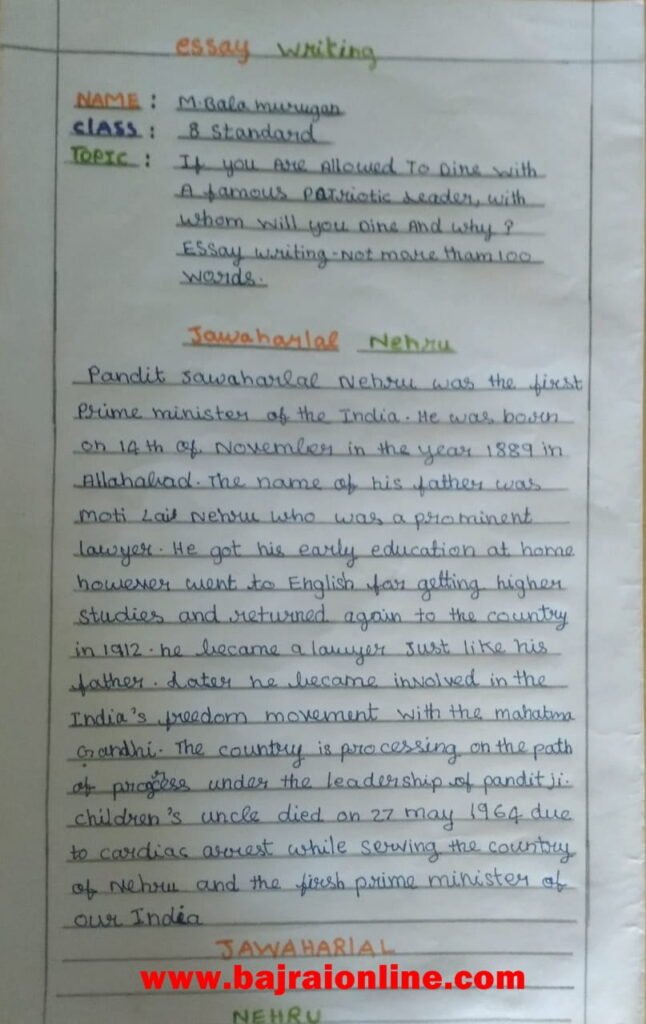 essay writing
NAME : M.Bala murugan
CLASS : 8 Standard
TOPIC : If you Are Allowed To Dine with
A famous Patriotic Leader, with
whom will you Dine And why ?
Essay writing-Not more tham 100
words.
Jawaharlal Nehru
Pandit Jawaharlal Nehru was the first
Prime minister of the India. He was born
on 14th of November in the year 1889 in
Allahabad. The name of his father was
Moti Lal Nehru who was a prominent
lawyer. He got his early education at home
however went to English for getting higher
studies and returned again to the country
in 1912. he became a lawyer Just like his
father. Later he became involved in the
India's freedom movement with the mahatma
Gandhi. The country is processing on the path
of progress under the leadership of pandit ji.
children's uncle died on 27 may 1964 due
to cardiac arrest while serving the country
of Nehru and the firsh prime minister of
our India
JAWAHARLAL
www.bajraionline.com
NEHRU